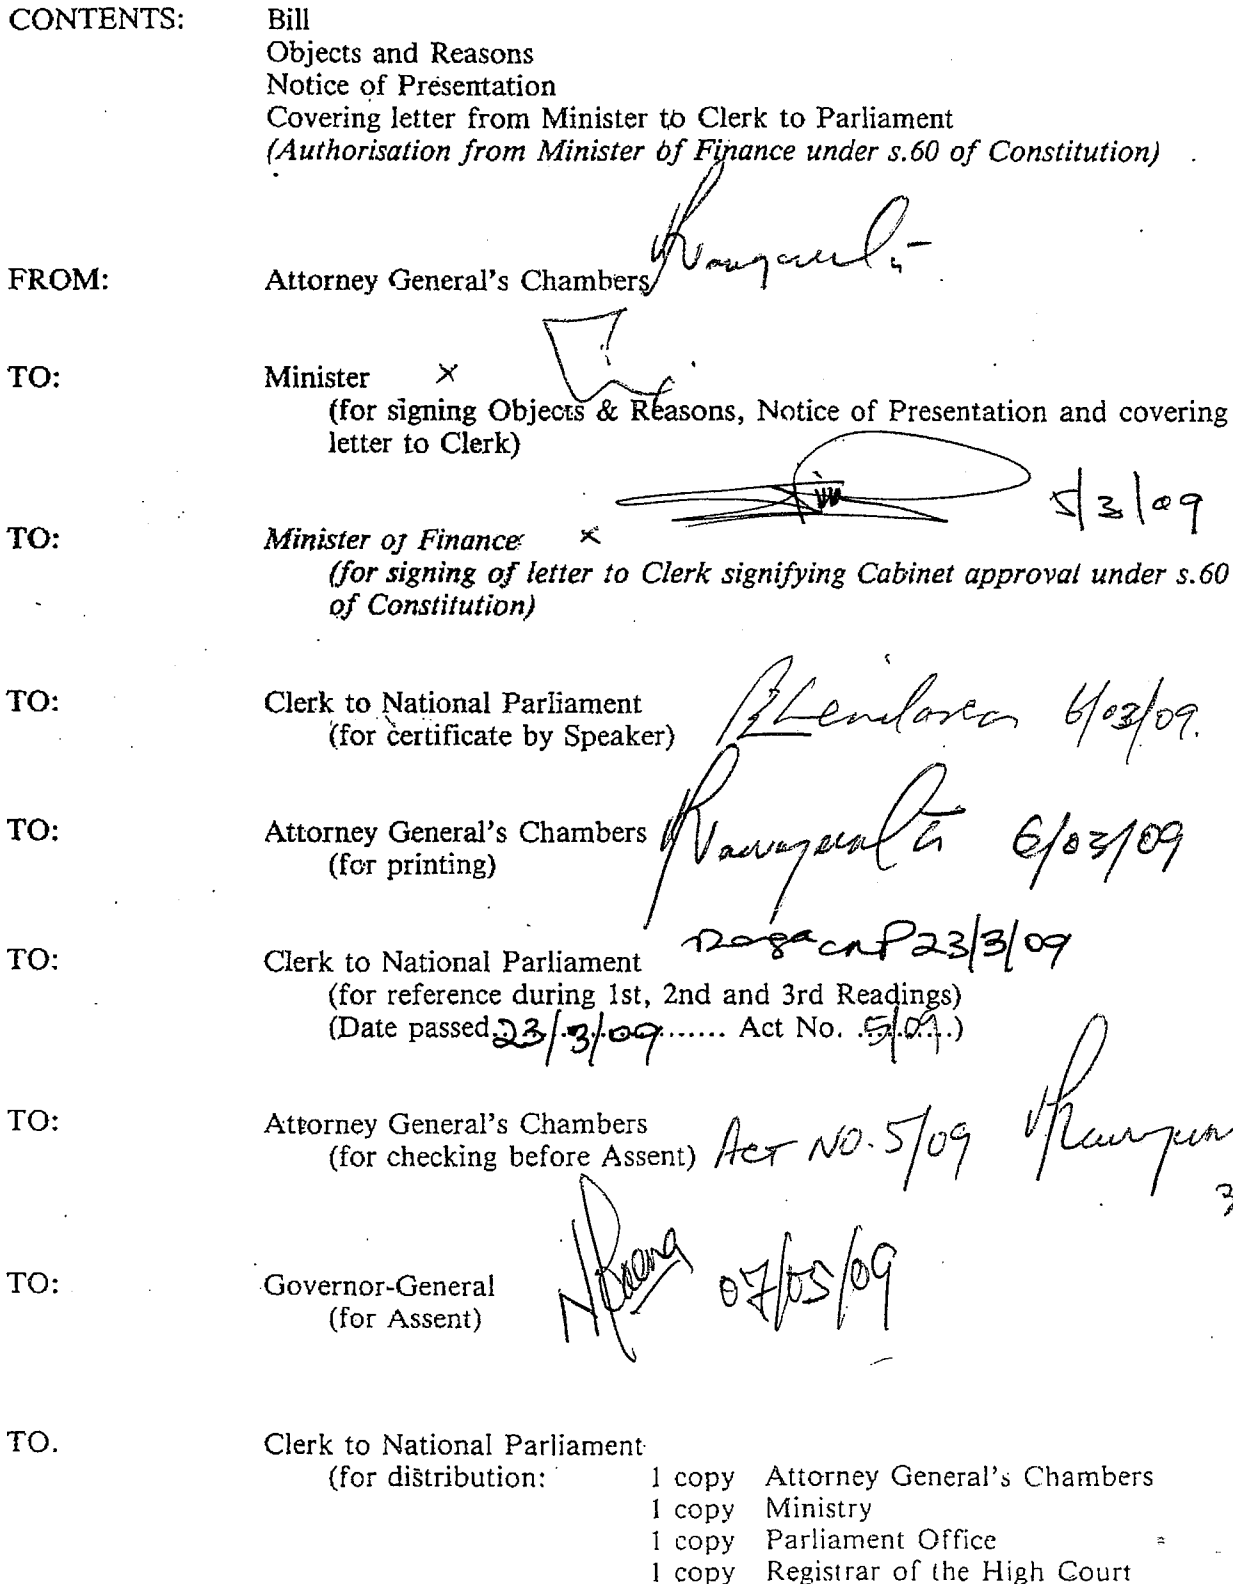 CONTENTS: Bill
Objects and Reasons
Notice of Presentation
Covering letter from Minister to Clerk to Parliament
(Authorisation from Minister of Finance under s.60 of Constitution)
FROM: Attorney General's Chambers
TO: Minister x
(for signing Objects & Reasons, Notice of Presentation and covering
letter to Clerk)
5/3/09
TO: Minister of Finance x
(for signing of letter to Clerk signifying Cabinet approval under s.60
of Constitution)
TO: Clerk to National Parliament
(for certificate by Speaker) 6/03/09.
TO: Attorney General's Chambers 6/03/09
(for printing)
TO: Clerk to National Parliament CNP 23/3/09
(for reference during 1st, 2nd and 3rd Readings)
(Date passed 23/3/09....... Act No. 5/09.)
TO: Attorney General's Chambers
(for checking before Assent) ACT NO. 5/09
TO: Governor-General 07/05/09
(for Assent)
TO. Clerk to National Parliament
(for distribution: 1 copy Attorney General's Chambers
1 copy Ministry
1 copy Parliament Office
1 copy Registrar of the High Court